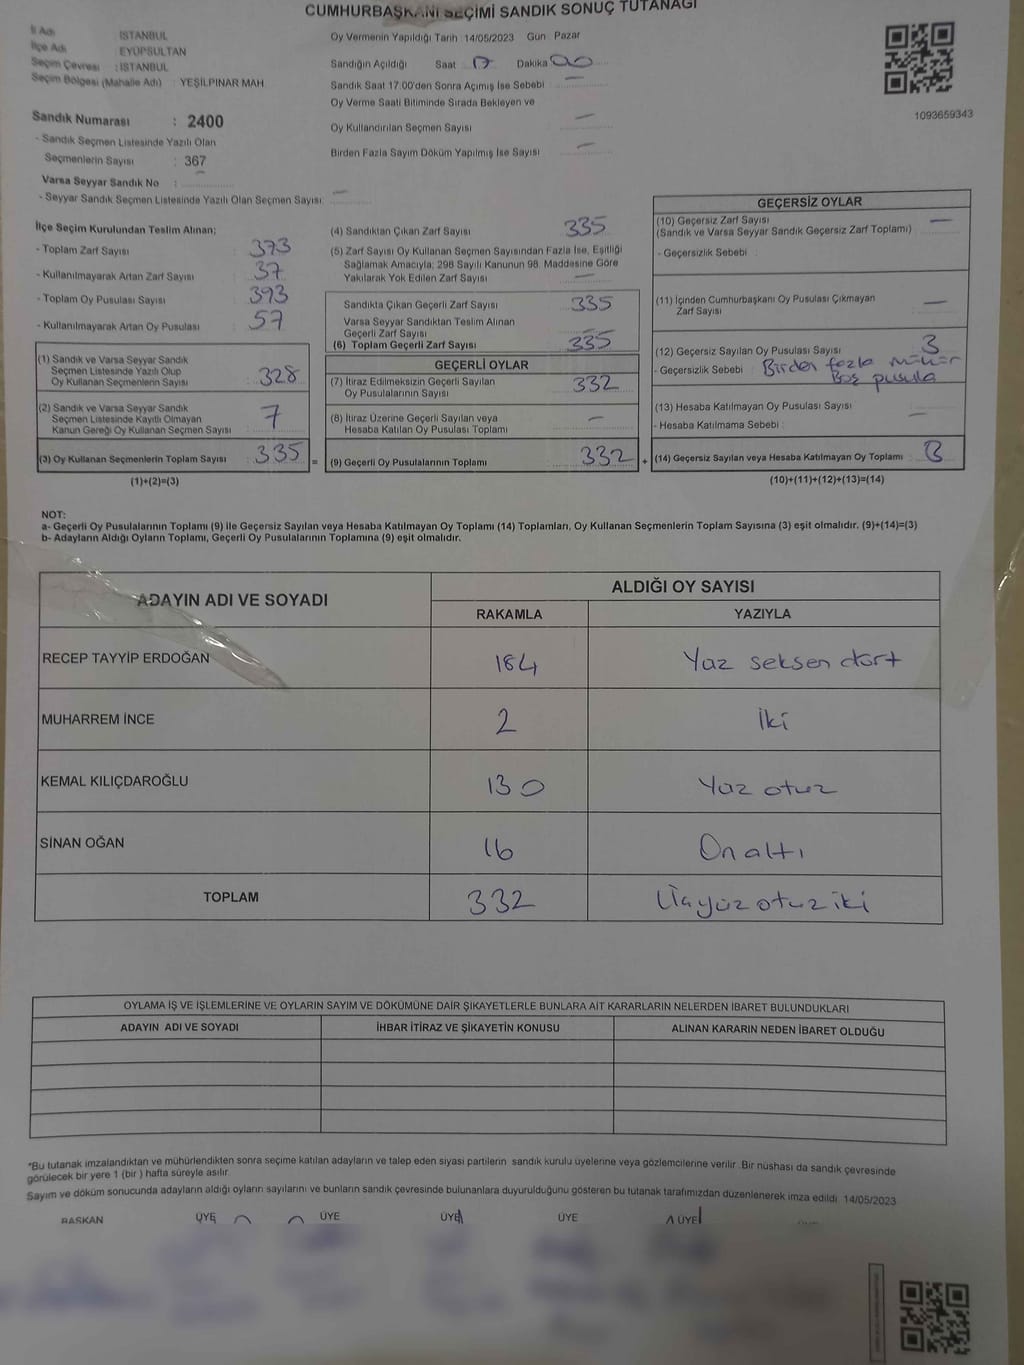 CUMHURBAŞKANI SEÇİMİ SANDIK SONUÇ TUTANAĞI
İl Adı : İSTANBUL
İlçe Adı : EYÜPSULTAN
Seçim Çevresi : İSTANBUL
Seçim Bölgesi (Mahalle Adı) : YEŞİLPINAR MAH
Oy Vermenin Yapıldığı Tarih 14/05/2023 Gün Pazar
Sandığın Açıldığı Saat 17 Dakika 00
Sandık Saat 17:00'den Sonra Açımış İse Sebebi —
Oy Verme Saati Bitiminde Sırada Bekleyen ve
Oy Kullandırılan Seçmen Sayısı —
Birden Fazla Sayım Döküm Yapılmış İse Sayısı —
1093659343
Sandık Numarası : 2400
- Sandık Seçmen Listesinde Yazılı Olan
Seçmenlerin Sayısı : 367
Varsa Seyyar Sandık No : —
- Seyyar Sandık Seçmen Listesinde Yazılı Olan Seçmen Sayısı: —
İlçe Seçim Kurulundan Teslim Alınan;
- Toplam Zarf Sayısı : 373
- Kullanılmayarak Artan Zarf Sayısı : 37
- Toplam Oy Pusulası Sayısı : 393
- Kullanılmayarak Artan Oy Pusulası : 57
(1) Sandık ve Varsa Seyyar Sandık
Seçmen Listesinde Yazılı Olup
Oy Kullanan Seçmenlerin Sayısı : 328
(2) Sandık ve Varsa Seyyar Sandık
Seçmen Listesinde Kayıtlı Olmayan
Kanun Gereği Oy Kullanan Seçmen Sayısı : 7
(3) Oy Kullanan Seçmenlerin Toplam Sayısı : 335
(1)+(2)=(3)
(4) Sandıktan Çıkan Zarf Sayısı 335
(5) Zarf Sayısı Oy Kullanan Seçmen Sayısından Fazla İse, Eşitliği
Sağlamak Amacıyla; 298 Sayılı Kanunun 98. Maddesine Göre
Yakılarak Yok Edilen Zarf Sayısı —
Sandıkta Çıkan Geçerli Zarf Sayısı 335
Varsa Seyyar Sandıktan Teslim Alınan
Geçerli Zarf Sayısı —
(6) Toplam Geçerli Zarf Sayısı 335
GEÇERLİ OYLAR
(7) İtiraz Edilmeksizin Geçerli Sayılan
Oy Pusulalarının Sayısı 332
(8) İtiraz Üzerine Geçerli Sayılan veya
Hesaba Katılan Oy Pusulası Toplamı —
= (9) Geçerli Oy Pusulalarının Toplamı 332
GEÇERSİZ OYLAR
(10) Geçersiz Zarf Sayısı —
(Sandık ve Varsa Seyyar Sandık Geçersiz Zarf Toplamı)
- Geçersizlik Sebebi
(11) İçinden Cumhurbaşkanı Oy Pusulası Çıkmayan
Zarf Sayısı —
(12) Geçersiz Sayılan Oy Pusulası Sayısı 3
- Geçersizlik Sebebi Birden fazla mühür
Boş pusula
(13) Hesaba Katılmayan Oy Pusulası Sayısı —
- Hesaba Katılmama Sebebi :
+ (14) Geçersiz Sayılan veya Hesaba Katılmayan Oy Toplamı : 3
(10)+(11)+(12)+(13)=(14)
NOT:
a- Geçerli Oy Pusulalarının Toplamı (9) ile Geçersiz Sayılan veya Hesaba Katılmayan Oy Toplamı (14) Toplamları, Oy Kullanan Seçmenlerin Toplam Sayısına (3) eşit olmalıdır. (9)+(14)=(3)
b- Adayların Aldığı Oyların Toplamı, Geçerli Oy Pusulalarının Toplamına (9) eşit olmalıdır.
ADAYIN ADI VE SOYADI
ALDIĞI OY SAYISI
RAKAMLA YAZIYLA
RECEP TAYYİP ERDOĞAN 184 Yüz seksen dört
MUHARREM İNCE 2 İki
KEMAL KILIÇDAROĞLU 130 Yüz otuz
SİNAN OĞAN 16 On altı
TOPLAM 332 Üçyüz otuz iki
OYLAMA İŞ VE İŞLEMLERİNE VE OYLARIN SAYIM VE DÖKÜMÜNE DAİR ŞİKAYETLERLE BUNLARA AİT KARARLARIN NELERDEN İBARET BULUNDUKLARI
ADAYIN ADI VE SOYADI İHBAR İTİRAZ VE ŞİKAYETİN KONUSU ALINAN KARARIN NEDEN İBARET OLDUĞU
*Bu tutanak imzalandıktan ve mühürlendikten sonra seçime katılan adayların ve talep eden siyasi partilerin sandık kurulu üyelerine veya gözlemcilerine verilir. Bir nüshası da sandık çevresinde
görülecek bir yere 1 (bir ) hafta süreyle asılır.
Sayım ve döküm sonucunda adayların aldığı oyların sayılarını ve bunların sandık çevresinde bulunanlara duyurulduğunu gösteren bu tutanak tarafımızdan düzenlenerek imza edildi. 14/05/2023
BAŞKAN ÜYE ÜYE ÜYE ÜYE ÜYE